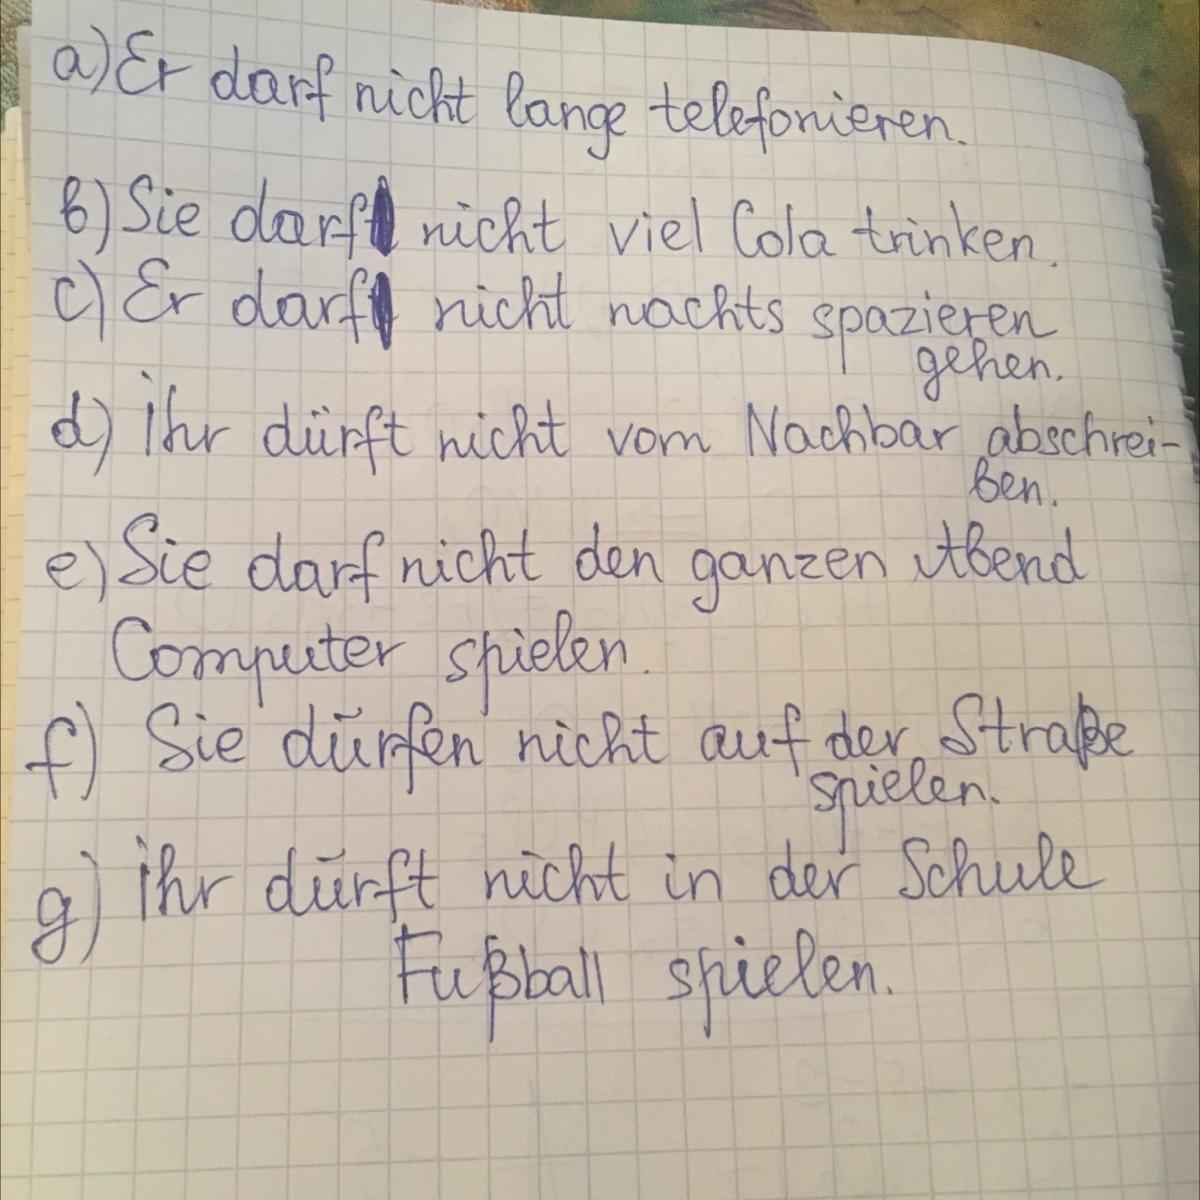 a) Er darf nicht lange telefonieren.
b) Sie darf nicht viel Cola trinken.
c) Er darf nicht nachts spazieren
gehen.
d) ihr dürft nicht vom Nachbar abschrei-
ben.
e) Sie darf nicht den ganzen Abend
Computer spielen.
f) Sie dürfen nicht auf der Straße
spielen.
g) ihr dürft nicht in der Schule
Fußball spielen.